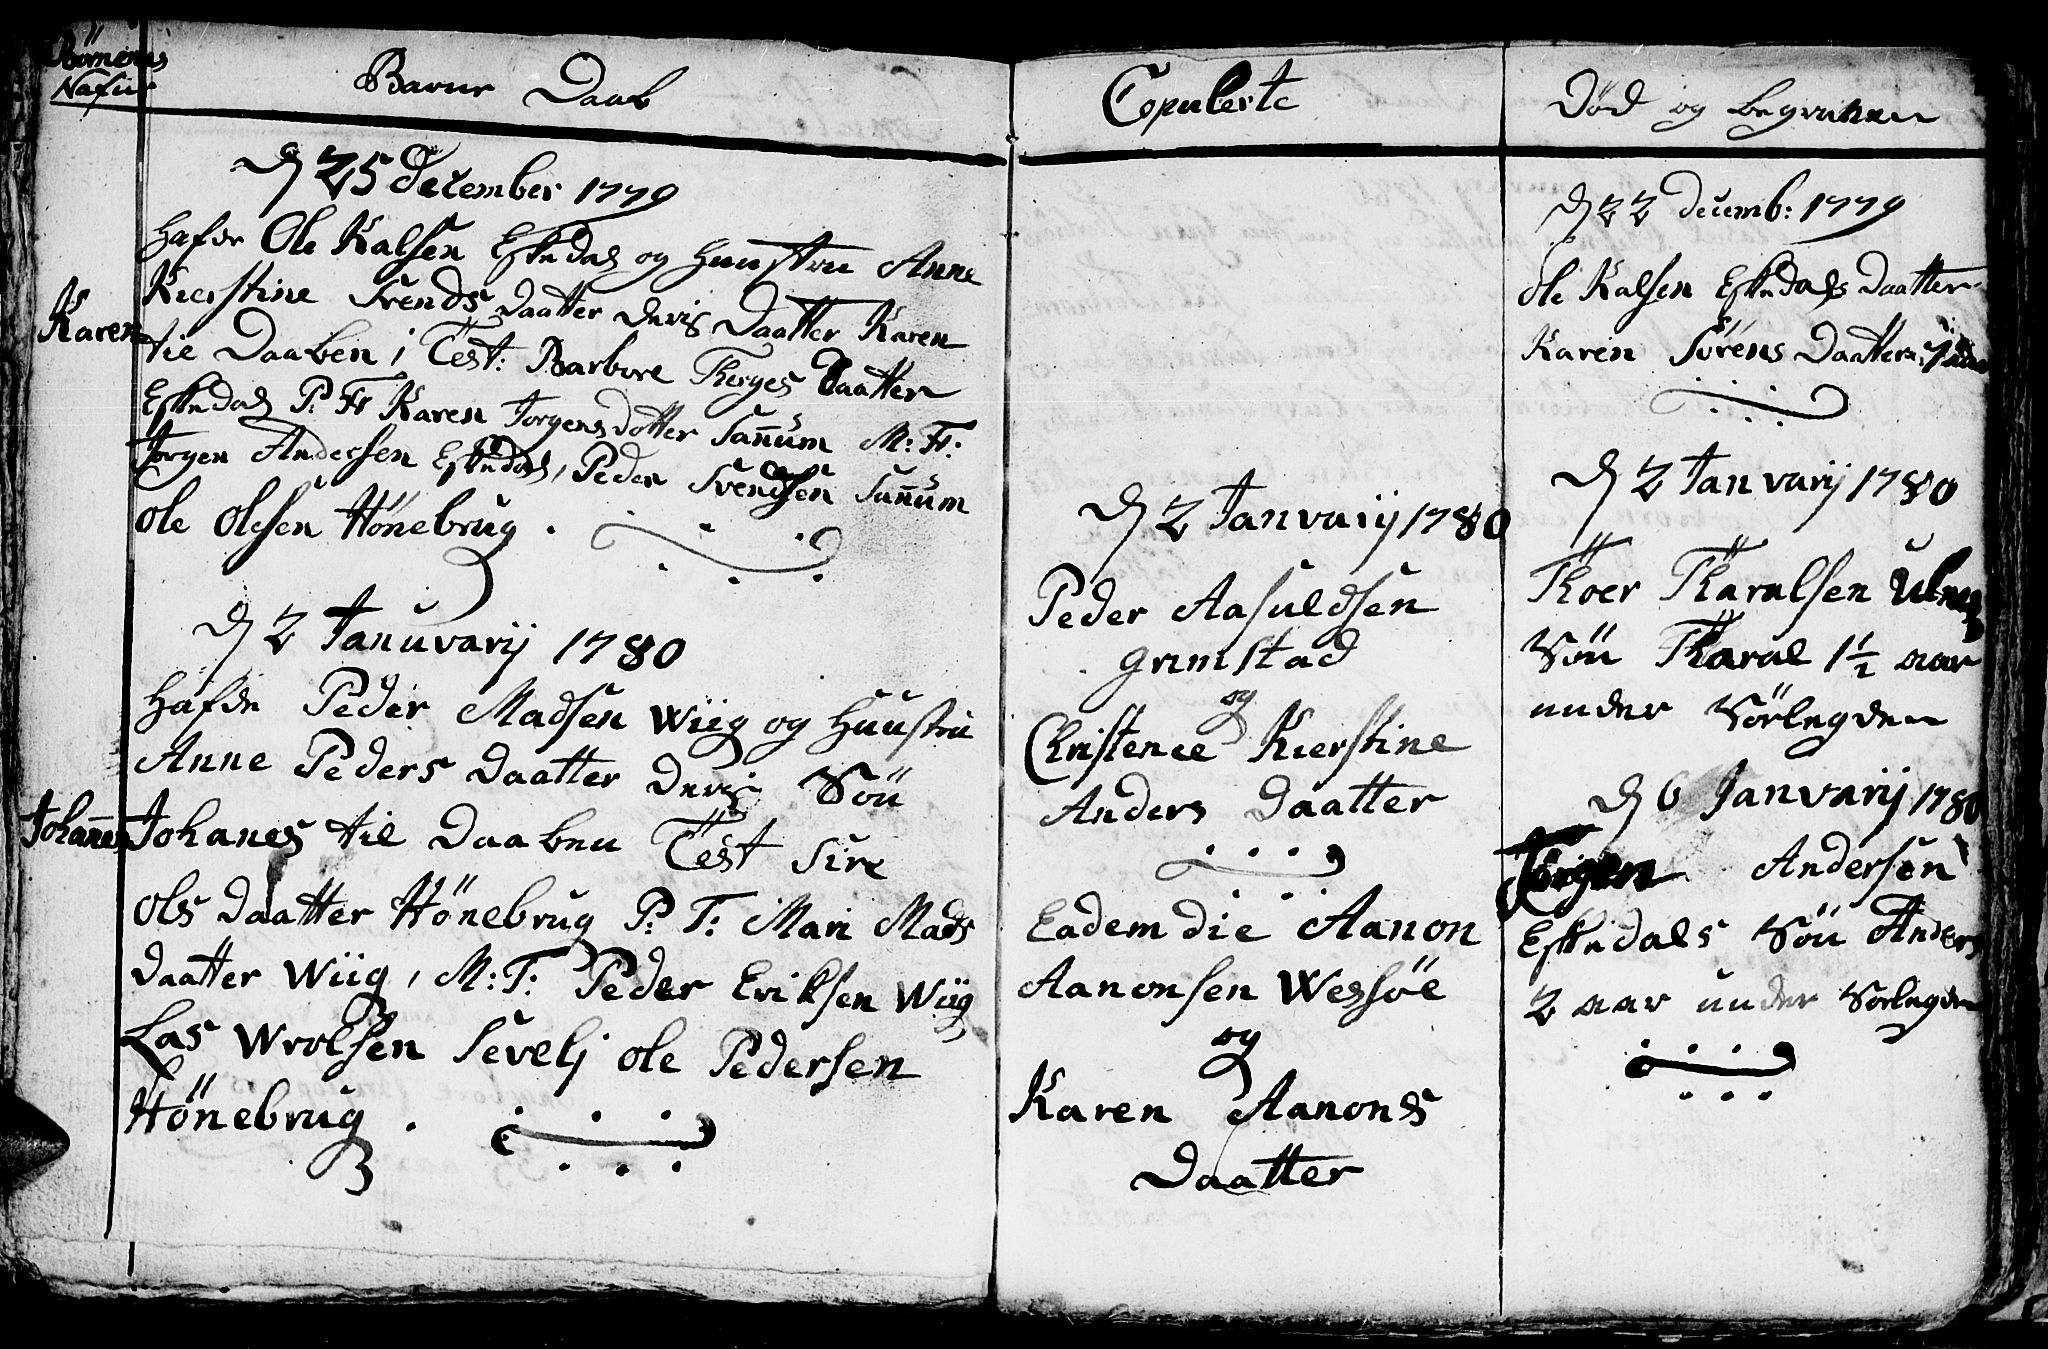 Börnenes
Nafne
Barne Daab
d 25 December 1779
Hafde Ole Kalsen Eskedals og Huustru Anne
Kierstine Svends Daatter deris Daatter Karen
Karen
til Daaben i Test: Barbore Therges Daatter
Eskedals P. Fr Karen Jorgens Dotter Sañum M: Fr:
Jorgen Andersen Eskedals, Peder Svendsen Sañum
Ole Olesen Hönebrug .
d 2 Januvarij 1780
Hafde Peder Madsen Wiig og Huustru
Anne Peders Daatter deris Sön
Johañes
Johanes til Daaben Test Sire
Ols Daatter Hönebrug P: F: Mari Mads
Daatter Wiig, M: F: Peder Eriksen Wiig
Las Wrolsen Sevelj Ole Pedersen
Hönebrug .
Copulerte
d 2 Janvarij 1780
Peder Aasuldsen
Grimstad
og
Christence Kierstine
Anders Daatter
Eadem Die Aanon
Aanonsen Wessöe
og
Karen Aanons
Daatter
Död og begravne
d 22 Decemb: 1779
Ole Kalsen Eskedals Daatter
Karen Sörens Daatter
d 2 Janvarij 1780
Thoer Tharalsen Ulnes
Sön Tharal 1 1/2 aar
under Sörlegden
d 6 Janvarij 1780
Jörgen Andersen
Eskedals Sön Anders
2 aar under Sörlegden